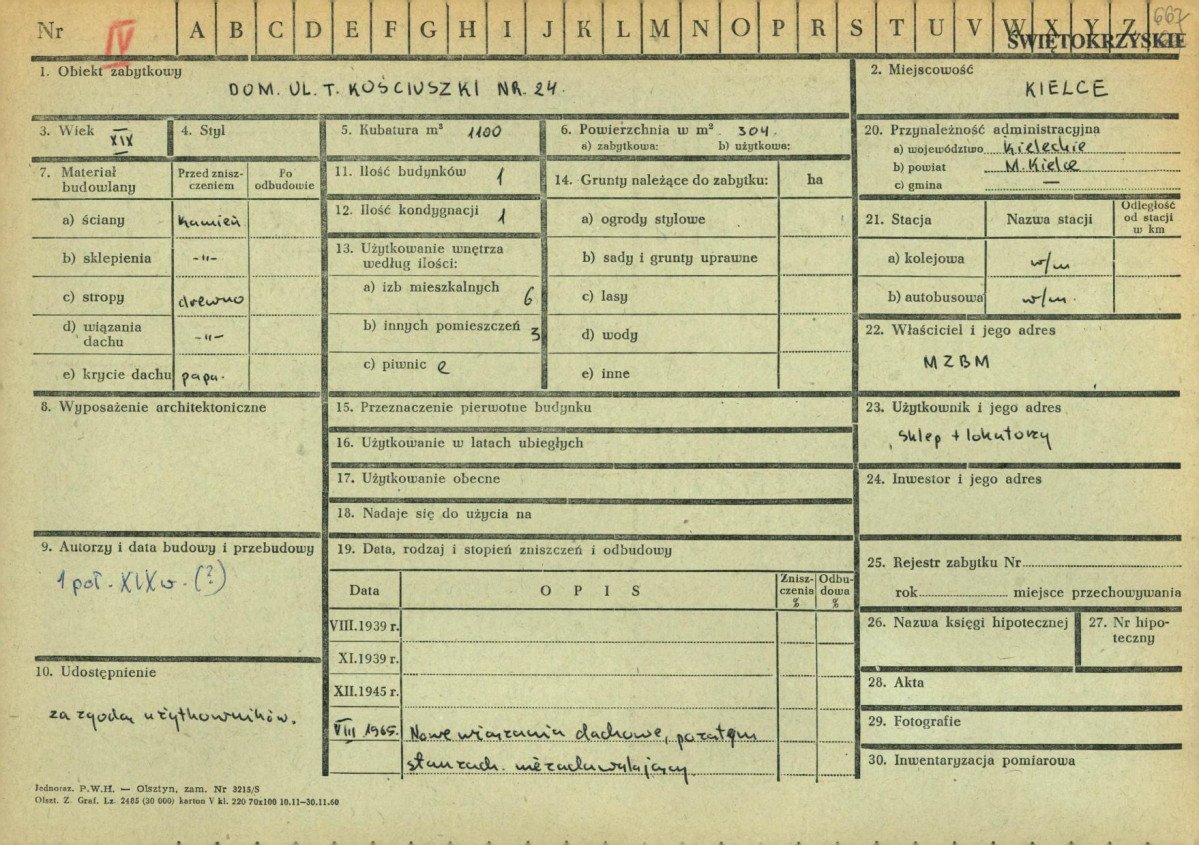 Nr IV A B C D E F G H I J K L M N O P R S T U V W X Y Z 667
ŚWIĘTOKRZYSKIE
1. Obiekt zabytkowy
DOM. UL. T. KOŚCIUSZKI NR. 24.
2. Miejscowość
KIELCE
3. Wiek XIX
4. Styl
5. Kubatura m³ 1100
6. Powierzchnia w m² 304.
a) zabytkowa: b) użytkowa:
20. Przynależność administracyjna
a) województwo Kieleckie
b) powiat M. Kielce
c) gmina —
7. Materiał budowlany
Przed zniszczeniem
Po odbudowie
a) ściany kamień
b) sklepienia -"-
c) stropy drewno
d) wiązania dachu -"-
e) krycie dachu papa.
11. Ilość budynków 1
12. Ilość kondygnacji 1
13. Użytkowanie wnętrza
według ilości:
a) izb mieszkalnych 6
b) innych pomieszczeń 3
c) piwnic 2
14. Grunty należące do zabytku: ha
a) ogrody stylowe
b) sady i grunty uprawne
c) lasy
d) wody
e) inne
21. Stacja
Nazwa stacji
Odległość
od stacji
w km
a) kolejowa w/m
b) autobusowa w/m.
22. Właściciel i jego adres
MZBM
8. Wyposażenie architektoniczne
15. Przeznaczenie pierwotne budynku
16. Użytkowanie w latach ubiegłych
17. Użytkowanie obecne
18. Nadaje się do użycia na
23. Użytkownik i jego adres
sklep + lokatorzy
24. Inwestor i jego adres
9. Autorzy i data budowy i przebudowy
1 poł. XIX w. (?)
10. Udostępnienie
za zgodą użytkowników.
19. Data, rodzaj i stopień zniszczeń i odbudowy
Data
O P I S
Zniszczenia %
Odbudowa %
VIII.1939 r.
XI.1939 r.
XII.1945 r.
VIII 1965. Nowe wiązania dachowe, pozatym
stan zach. niezadawalający.
25. Rejestr zabytku Nr
rok miejsce przechowywania
26. Nazwa księgi hipotecznej
27. Nr hipoteczny
28. Akta
29. Fotografie
30. Inwentaryzacja pomiarowa
Jednoraz. P.W.H. — Olsztyn, zam. Nr 3215/S
Olszt. Z. Graf. Lz. 2485 (30 000) karton V kl. 220 70x100 10.11—30.11.60